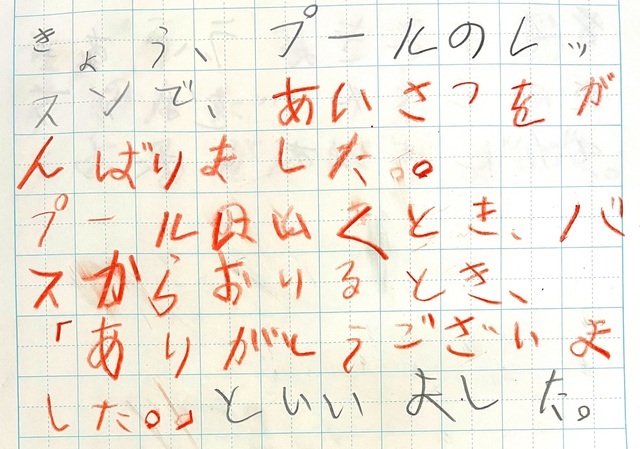 きょう、プールのレッ
スンで、あいさつをが
んばりました。
プールにいくとき、バ
スからおりるとき、
「ありがとうございま
した。。といいました。